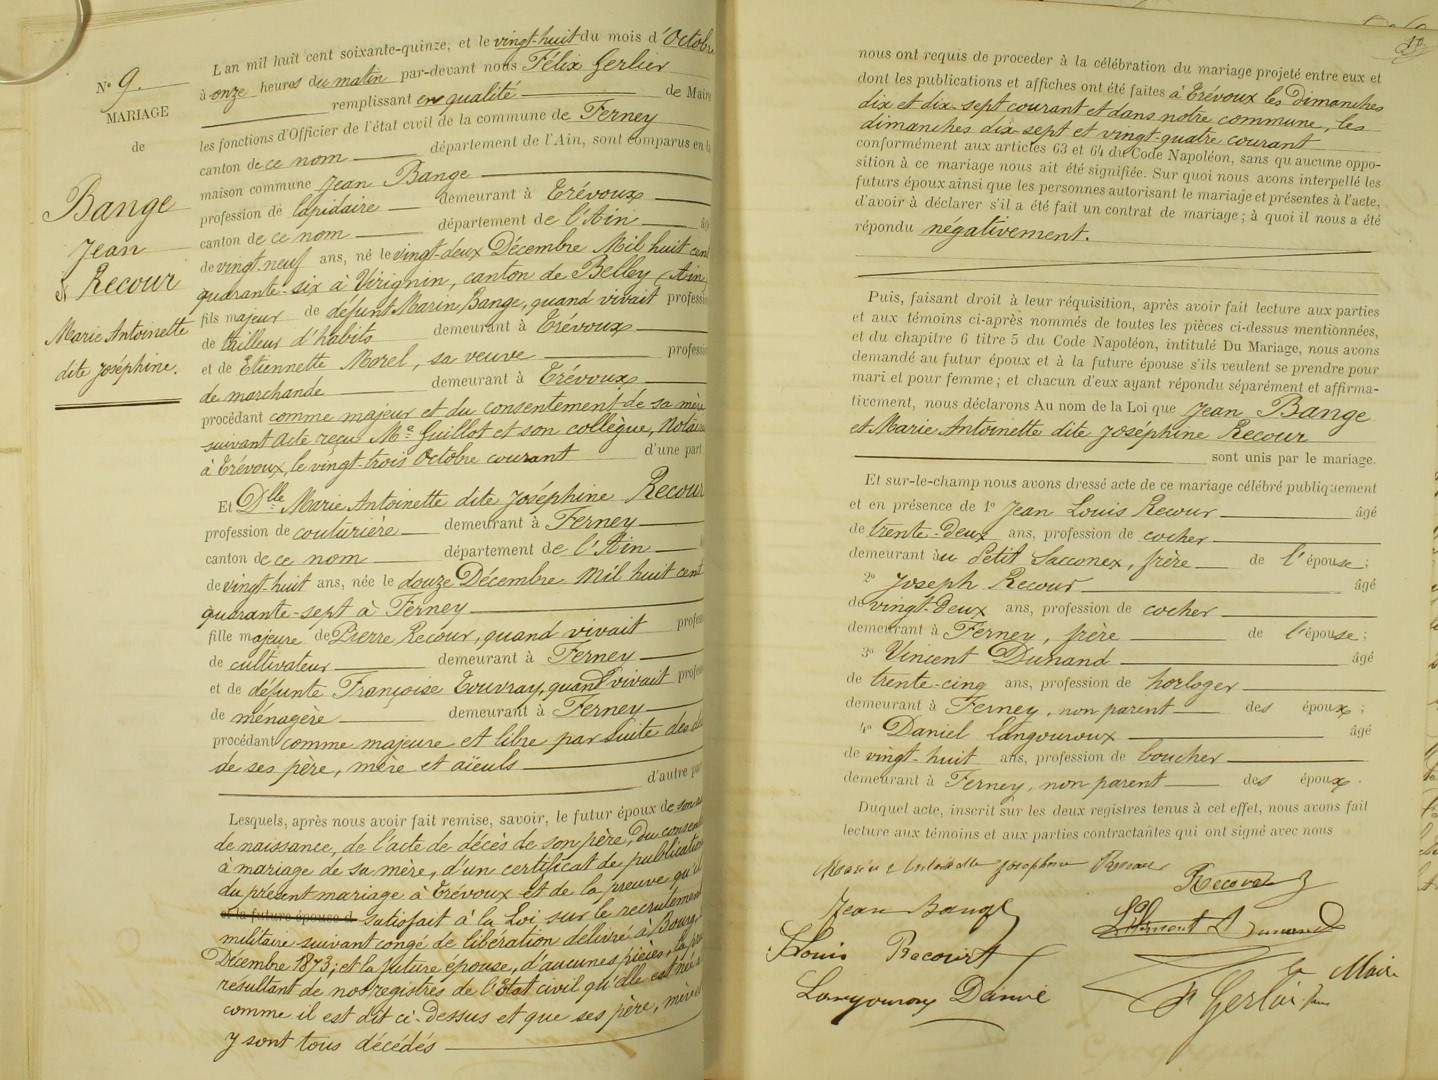 N° 9.
MARIAGE
de
Bange
Jean
& Recour
Marie Antoinette
dite Joséphine.
L'an mil huit cent soixante-quinze, et le vingt-huit du mois d'Octobre
à onze heures du matin par-devant nous Félix Gerlier
remplissant en qualité de Maire
les fonctions d'Officier de l'état civil de la commune de Ferney
canton de ce nom département de l'Ain, sont comparus en la
maison commune Jean Bange
profession de lapidaire demeurant à Trévoux
canton de ce nom département de l'Ain âg
de vingt-neuf ans, né le vingt-deux Décembre Mil huit cent
quarante-six à Virignin, canton de Belley (Ain)
fils majeur de défunt Marin Bange, quand vivait professi
de tailleur d'habits demeurant à Trévoux
et de Etiennette Morel, sa veuve professi
de marchande demeurant à Trévoux
procédant comme majeur et du consentement de sa mère
suivant acte reçu Me Guillot et son collègue, Notaires
à Trévoux, le vingt-trois Octobre courant d'une part
Et Dlle Marie Antoinette dite Joséphine Recour
profession de couturière demeurant à Ferney
canton de ce nom département de l'Ain
de vingt-huit ans, née le douze Décembre Mil huit cent
quarante-sept à Ferney
fille majeure de Pierre Recour, quand vivait profes
de cultivateur demeurant à Ferney
et de défunte Françoise Touvray, quand vivait profes
de ménagère demeurant à Ferney
procédant comme majeure et libre par suite des dé
de ses père, mère et aïeuls
d'autre par
Lesquels, après nous avoir fait remise, savoir, le futur époux de son a
de naissance, de l'acte de décès de son père, du consent
à mariage de sa mère, d'un certificat de publication
du présent mariage à Trévoux et de la preuve qu'il
et la future épouse d satisfait à la Loi sur le recrutement
militaire suivant congé de libération délivré à Bourg,
Décembre 1873; et la future épouse, d'aucunes pièces, la
résultant de nos registres de l'Etat civil qu'elle est née
comme il est dit ci-dessus et que ses père, mère
y sont tous décédés
nous ont requis de procéder à la célébration du mariage projeté entre eux et
dont les publications et affiches ont été faites à Trévoux les Dimanches
dix et dix-sept courant et dans notre commune, les
dimanches dix-sept et vingt-quatre courant
conformément aux articles 63 et 64 du Code Napoléon, sans qu'aucune oppo-
sition à ce mariage nous ait été signifiée. Sur quoi nous avons interpellé les
futurs époux ainsi que les personnes autorisant le mariage et présentes à l'acte,
d'avoir à déclarer s'il a été fait un contrat de mariage; à quoi il nous a été
répondu négativement.
Puis, faisant droit à leur réquisition, après avoir fait lecture aux parties
et aux témoins ci-après nommés de toutes les pièces ci-dessus mentionnées,
et du chapitre 6 titre 5 du Code Napoléon, intitulé Du Mariage, nous avons
demandé au futur époux et à la future épouse s'ils veulent se prendre pour
mari et pour femme; et chacun d'eux ayant répondu séparément et affirma-
tivement, nous déclarons Au nom de la Loi que Jean Bange
et Marie Antoinette dite Joséphine Recour
sont unis par le mariage.
Et sur-le-champ nous avons dressé acte de ce mariage célébré publiquement
et en présence de 1° Jean Louis Recour âgé
de trente-deux ans, profession de cocher
demeurant au Petit Sacconex, frère de l'épouse;
2° Joseph Recour âgé
de vingt-deux ans, profession de cocher
demeurant à Ferney, frère de l'épouse;
3° Vincent Dunand âgé
de trente-cinq ans, profession de horloger
demeurant à Ferney, non parent des époux;
4° Daniel Langouroux âgé
de vingt-huit ans, profession de boucher
demeurant à Ferney, non parent des époux.
Duquel acte, inscrit sur les deux registres tenus à cet effet, nous avons fait
lecture aux témoins et aux parties contractantes qui ont signé avec nous
Marie Antoinette Josephine Recour
Recour J
Jean Bange
Dunand
Louis Recourt
le Maire
Langouroux Daniel
F Gerlier